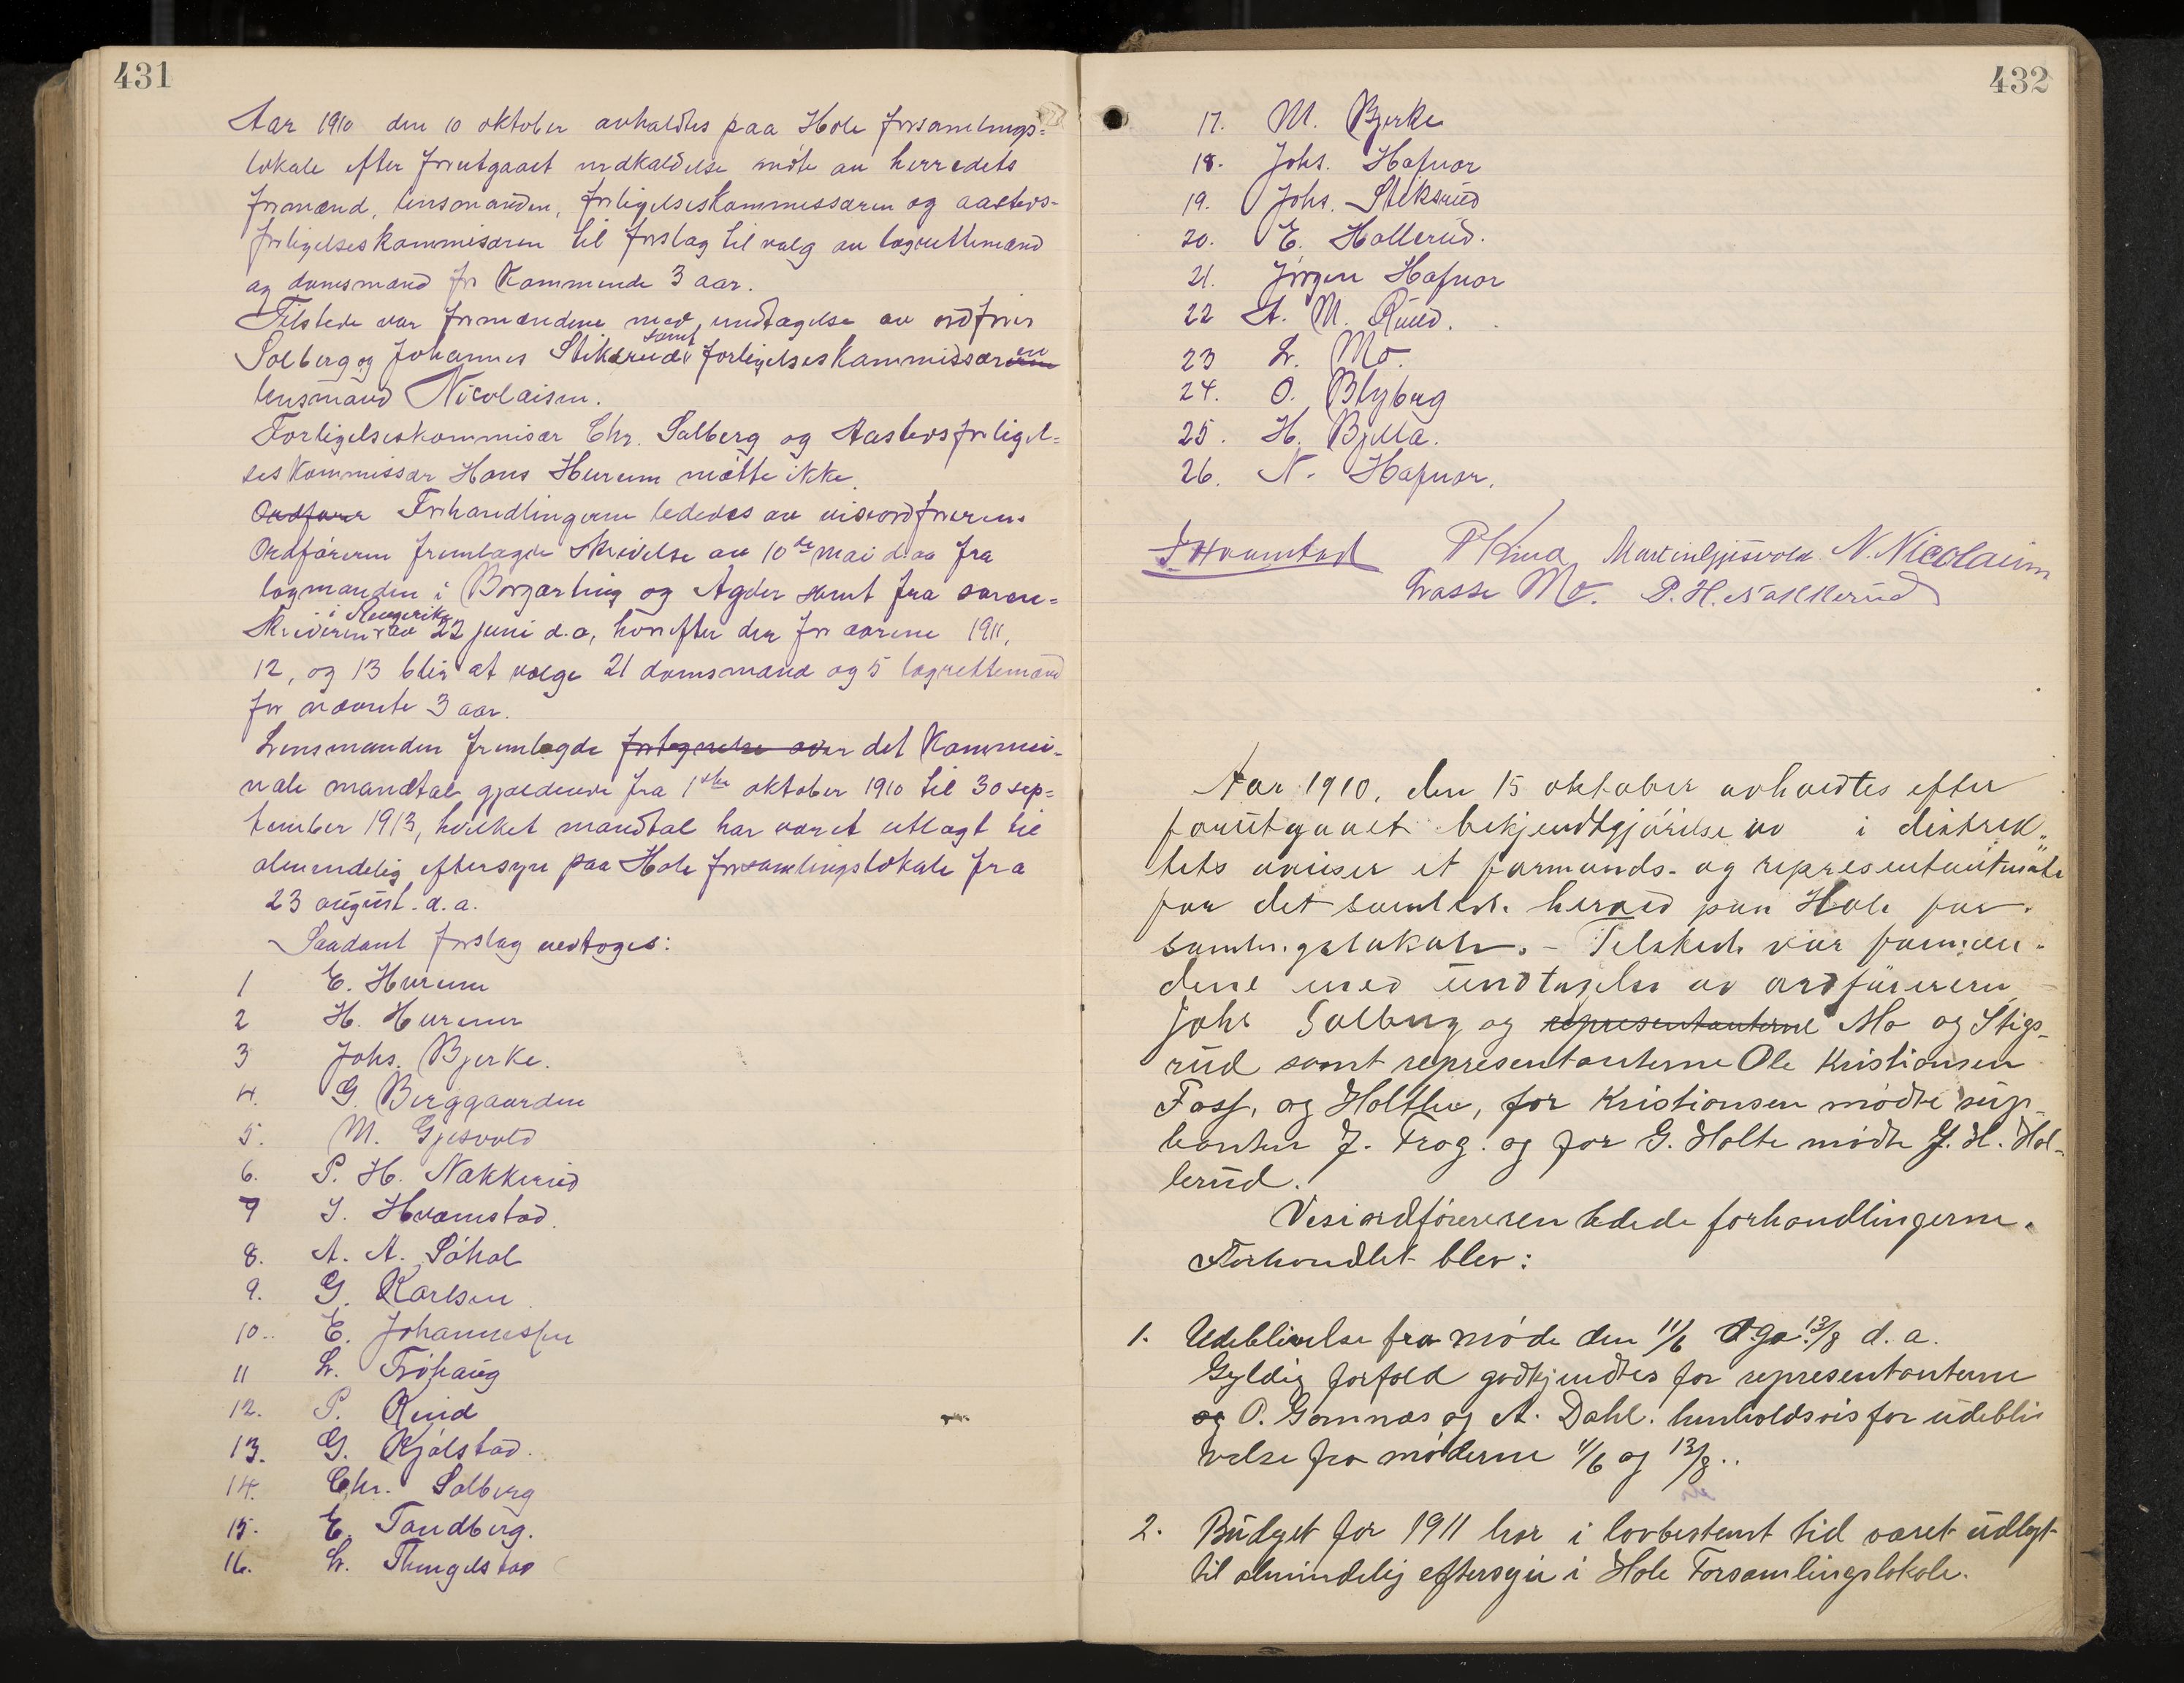 431
Aar 1910 den 10 oktober avholdtes paa Hole forsamlings=
lokale efter forutgaaet indkaldelse møte av herredets
formænd, lensmanden, forligelseskommissæren og aasteds-
forligelseskommisæren til forslag til valg av lagrettemænd
og domsmænd for kommende 3 aar.
Tilstede var formændene med undtagelse av ordfører
Solberg og Johannes Stiksrud samt forligelseskommissæren
lensmand Nicolaisen.
Forligelseskommisær Chr. Solberg og Aastedsforligel=
seskommissær Hans Hurum møtte ikke.
Ordfører Forhandlingerne lededes av viseordføreren.
Ordføreren fremlagde skrivelse av 10de mai d.aa fra
lagmanden i Borgarting og Agder samt fra soren=
skriveren i Ringerike av 22 juni d.a, hvorefter der for aarene 1911,
12, og 13 blir at vælge 21 domsmænd og 5 lagrettemænd
for nævnte 3 aar.
Lensmanden fremlagde fortegnelse over det kommu-
nale mandtal gjældende fra 1ste oktober 1910 til 30 sep=
tember 1913, hvilket mandtal har været utlagt til
almindelig eftersyn paa Hole forsamlingslokale fra
23 august. d.a.
Saadant forslag vedtoges:
1 E. Hurum
2 H. Hurum
3 Johs. Bjerke.
4. G. Berggaarden
5. M. Gjesvold
6. P. H. Nakkerud
7 I. Hvamstad.
8. A. A. Søhol
9. G. Karlsen
10.. E. Johannessen
11 L. Frøhaug
12. P. Ruud
13. G. Kjølstad.
14. Chr. Solberg
15. E. Tandberg.
16. L. Thingelstad
432
17. M. Bjerke
18. Johs. Hafnor
19. Johs. Stiksrud
20. E. Hallerud.
21. Jørgen Hafnor
22 A. M. Ruud.
23 L. Mo.
24. O. Blyberg
25. H. Bjella.
26. N. Hafnor.
I. Hvamstad Martin Gjesvold. N. Nicolaisen
Lasse Mo. P. H. Nakkerud
Aar 1910, den 15 oktober avholdtes efter
forutgaaet bekjendtgjørelse av i distrik„
tets aviser et formands- og representantmøte
for det samlede herred paa Hole for-
samlingslokale. – Tilstede var formæn-
dene med undtagelse av ordføreren
Johs Solberg og representanterne Mo og Stigs-
rud samt representanterne Ole Kristiansen
Foss, og Holthe, for Kristiansen mødte sup-
leanten J. Frog. og for G. Holte mødte J. H. Hol-
lerud.
Visiordføreren ledede forhandlingerne.
Forhandlet blev:
1. Udeblivelse fra møde den 11/6 og 13/8 d. a.
Gyldig forfald godkjendtes for representanterne
og O. Gomnæs og A. Dahl. henholdsvis for udebli
velse fra møderne 11/6 og 13/8..
2. Budget for 1911 har i lovbestemt tid været udlagt
til almindelig eftersyn i Hole Forsamlingslokale.